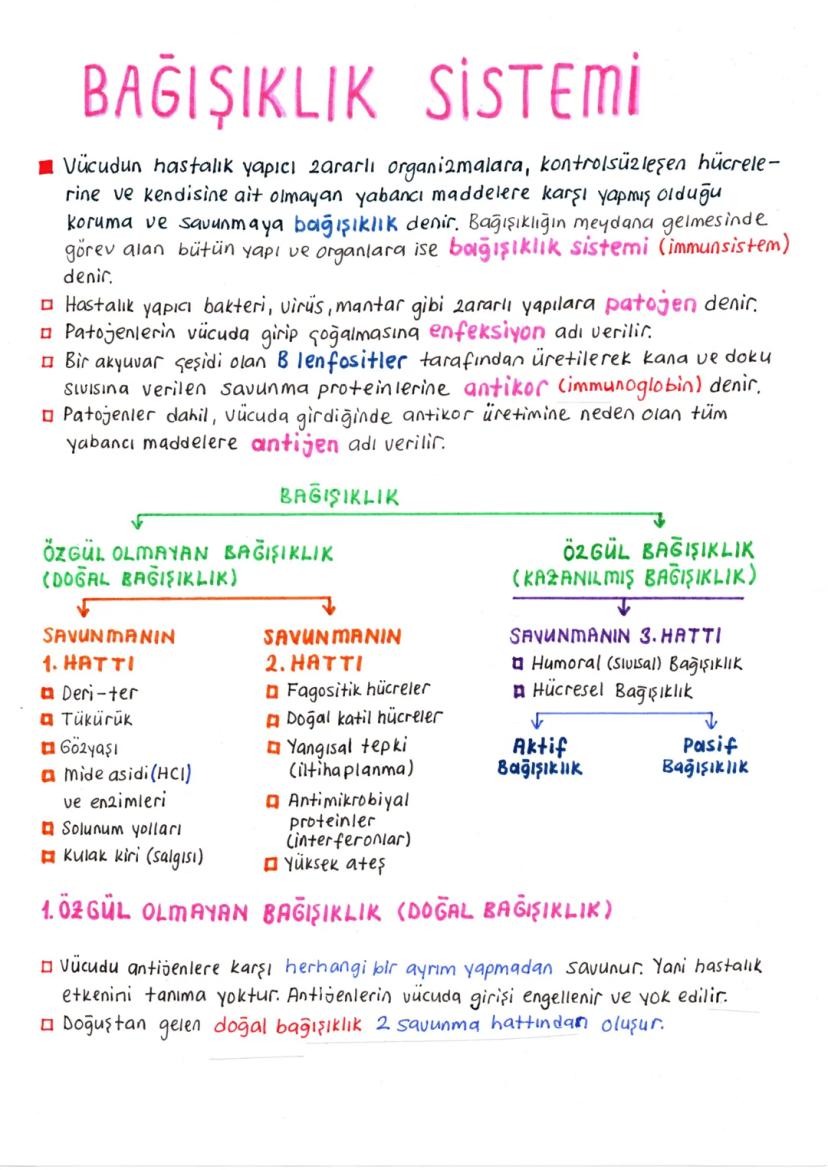 BAĞIŞIKLIK SİSTEMİ
Vücudun hastalık yapıcı zararlı organizmalara, kontrolsüzleşen hücrele-
rine ve kendisine ait olmayan yabancı maddelere karşı yapmış olduğu
koruma ve savunmaya bağışıklık denir. Bağışıklığın meydana gelmesinde
görev alan bütün yapı ve organlara ise bağışıklık sistemi (immunsistem)
denir.
Hastalık yapıcı bakteri, virüs, mantar gibi zararlı yapılara patojen denir.
Patojenlerin vücuda girip çoğalmasına enfeksiyon adı verilir.
Bir akyuvar çeşidi olan B lenfositler tarafından üretilerek kana ve doku
sıvısına verilen savunma proteinlerine antikor (immunoglobin) denir.
Patojenler dahil, vücuda girdiğinde antikor üretimine neden olan tüm
yabancı maddelere antijen adı verilir.
BAĞIŞIKLIK
ÖZGÜL OLMAYAN BAĞIŞIKLIK
(DOĞAL BAĞIŞIKLIK)
ÖZGÜL BAĞIŞIKLIK
(KAZANILMIŞ BAĞIŞIKLIK)
SAVUNMANIN
1. HATTI
Deri-ter
Tükürük
Gözyaşı
Mide asidi (HCl)
ve enzimleri
Solunum yolları
Kulak kiri (salgısı)
SAVUNMANIN
2. HATTI
Fagositik hücreler
Doğal katil hücreler
Yangısal tepki
(iltihaplanma)
Antimikrobiyal
proteinler
(interferonlar)
Yüksek ateş
SAVUNMANIN 3. HATTI
Humoral (sıvısal) Bağışıklık
Hücresel Bağışıklık
Aktif
Bağışıklık
Pasif
Bağışıklık
1. ÖZGÜL OLMAYAN BAĞIŞIKLIK (DOĞAL BAĞIŞIKLIK)
Vücudu antijenlere karşı herhangi bir ayrım yapmadan savunur. Yani hastalık
etkenini tanıma yoktur. Antijenlerin vücuda girişi engellenir ve yok edilir.
Doğuştan gelen doğal bağışıklık 2 savunma hattından oluşur.